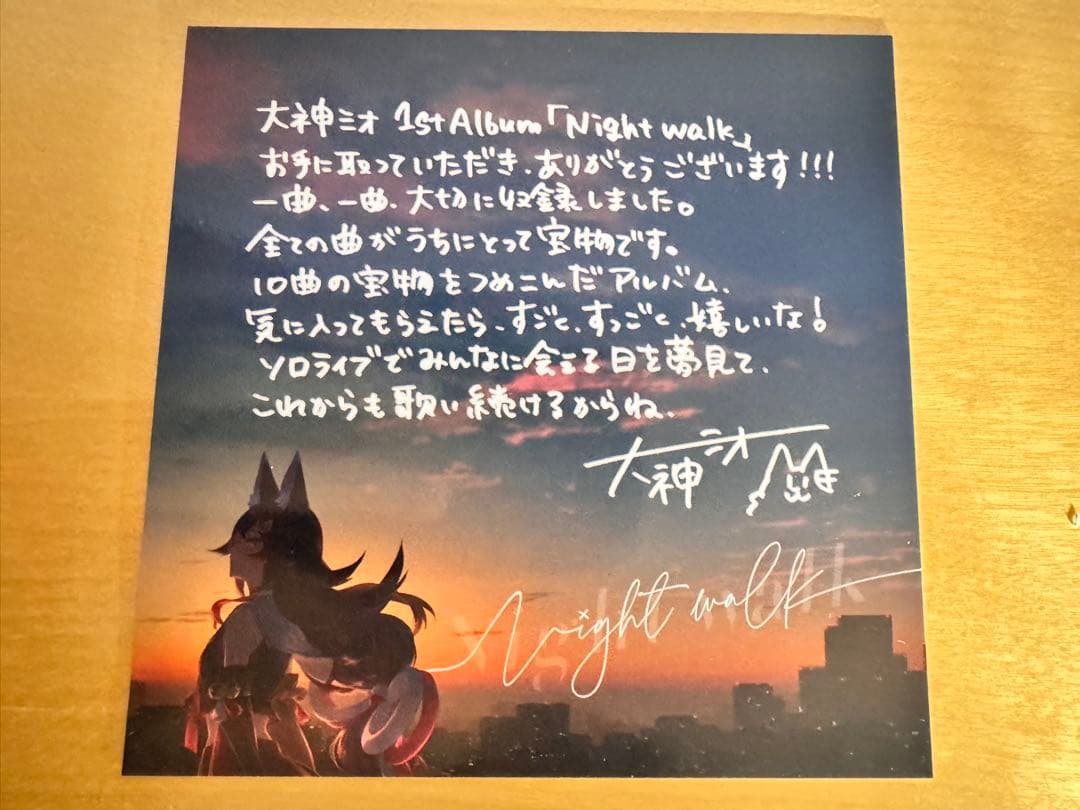 大神ミオ 1st Album「Night walk」
お手に取っていただき、ありがとうございます!!!
一曲、一曲、大切に収録しました。
全ての曲がうちにとって宝物です。
10曲の宝物をつめこんだアルバム、
気に入ってもらえたら、すごく、すっごく、嬉しいな!
ソロライブでみんなに会える日を夢見て、
これからも歌い続けるからね、
大神ミオ
Night walk